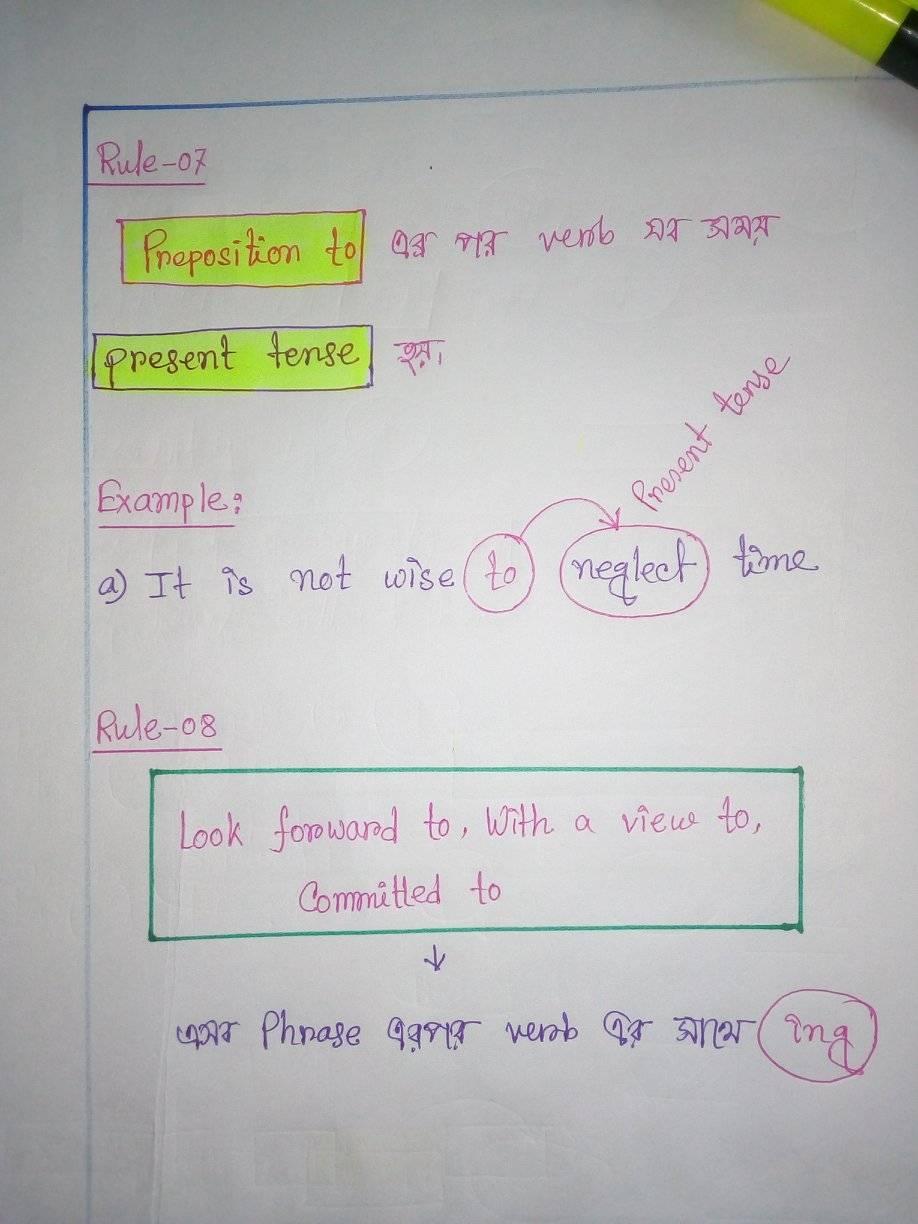 Rule-07
Preposition to এর পর verb সব সময়
present tense হয়।
Present tense
Example:
a) It is not wise to neglect time
Rule-08
Look forward to, With a view to,
Committed to
↓
এসব Phrase এরপরে verb এর সাথে ing